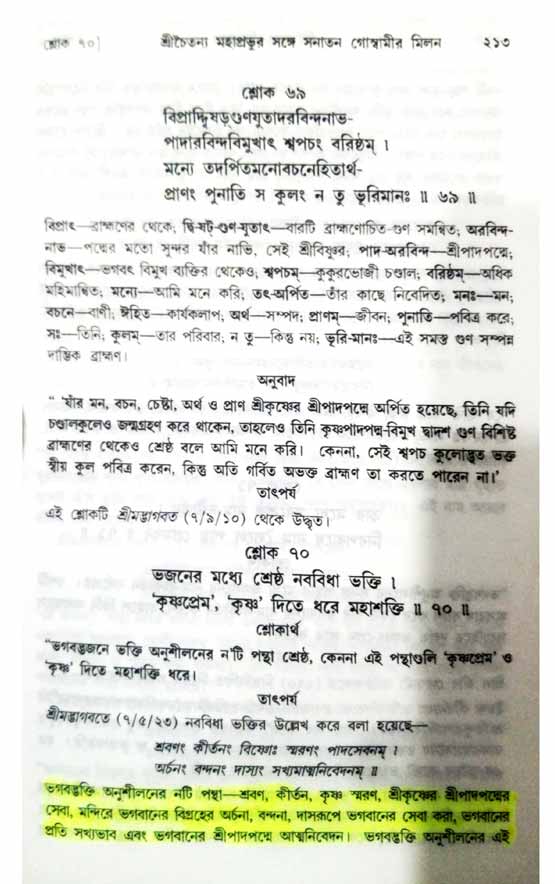 শ্লোক ৭০]
শ্রীচৈতন্য মহাপ্রভুর সঙ্গে সনাতন গোস্বামীর মিলন
২১৩
শ্লোক ৬৯
বিপ্রাদ্দ্বিষড়্গুণযুতাদরবিন্দনাভ-
পাদারবিন্দবিমুখাৎ শ্বপচং বরিষ্ঠম্ ।
মন্যে তদর্পিতমনোবচনেহিতার্থ-
প্রাণং পুনাতি স কুলং ন তু ভূরিমানঃ ॥ ৬৯ ॥
বিপ্রাৎ—ব্রাহ্মণের থেকে; দ্বি-ষট্-গুণ-যুতাৎ—বারটি ব্রাহ্মণোচিত-গুণ সমন্বিত; অরবিন্দ-
নাভ—পদ্মের মতো সুন্দর যাঁর নাভি, সেই শ্রীবিষ্ণুর; পাদ-অরবিন্দ—শ্রীপাদপদ্মে;
বিমুখাৎ—ভগবৎ বিমুখ ব্যক্তির থেকেও; শ্বপচম্—কুকুরভোজী চণ্ডাল; বরিষ্ঠম—অধিক
মহিমান্বিত; মন্যে—আমি মনে করি; তৎ-অর্পিত—তাঁর কাছে নিবেদিত; মনঃ—মন;
বচনে—বাণী; ঈহিত—কার্যকলাপ; অর্থ—সম্পদ; প্রাণম্—জীবন; পুনাতি—পবিত্র করে;
সঃ—তিনি; কুলম্—তার পরিবার; ন তু—কিন্তু নয়; ভূরি-মানঃ—এই সমস্ত গুণ সম্পন্ন
দাম্ভিক ব্রাহ্মণ।
অনুবাদ
“ ‘যাঁর মন, বচন, চেষ্টা, অর্থ ও প্রাণ শ্রীকৃষ্ণের শ্রীপাদপদ্মে অর্পিত হয়েছে, তিনি যদি
চণ্ডালকুলেও জন্মগ্রহণ করে থাকেন, তাহলেও তিনি কৃষ্ণপাদপদ্ম-বিমুখ দ্বাদশ গুণ বিশিষ্ট
ব্রাহ্মণের থেকেও শ্রেষ্ঠ বলে আমি মনে করি। কেননা, সেই শ্বপচ কুলোদ্ভূত ভক্ত
স্বীয় কুল পবিত্র করেন, কিন্তু অতি গর্বিত অভক্ত ব্রাহ্মণ তা করতে পারেন না।’
তাৎপর্য
এই শ্লোকটি শ্রীমদ্ভাগবত (৭/৯/১০) থেকে উদ্ধৃত।
শ্লোক ৭০
ভজনের মধ্যে শ্রেষ্ঠ নববিধা ভক্তি ।
‘কৃষ্ণপ্রেম’, ‘কৃষ্ণ’ দিতে ধরে মহাশক্তি ॥ ৭০ ॥
শ্লোকার্থ
“ভগবদ্ভজনে ভক্তি অনুশীলনের ন'টি পন্থা শ্রেষ্ঠ, কেননা এই পন্থাগুলি ‘কৃষ্ণপ্রেম’ ও
‘কৃষ্ণ’ দিতে মহাশক্তি ধরে।
তাৎপর্য
শ্রীমদ্ভাগবতে (৭/৫/২৩) নববিধা ভক্তির উল্লেখ করে বলা হয়েছে—
শ্রবণং কীর্তনং বিষ্ণোঃ স্মরণং পাদসেবনম্ ।
অর্চনং বন্দনং দাস্যং সখ্যমাত্মনিবেদনম্ ॥
ভগবদ্ভক্তি অনুশীলনের নটি পন্থা—শ্রবণ, কীর্তন, কৃষ্ণ স্মরণ, শ্রীকৃষ্ণের শ্রীপাদপদ্মের
সেবা, মন্দিরে ভগবানের বিগ্রহের অর্চনা, বন্দনা, দাসরূপে ভগবানের সেবা করা, ভগবানের
প্রতি সখ্যভাব এবং ভগবানের শ্রীপাদপদ্মে আত্মনিবেদন। ভগবদ্ভক্তি অনুশীলনের এই